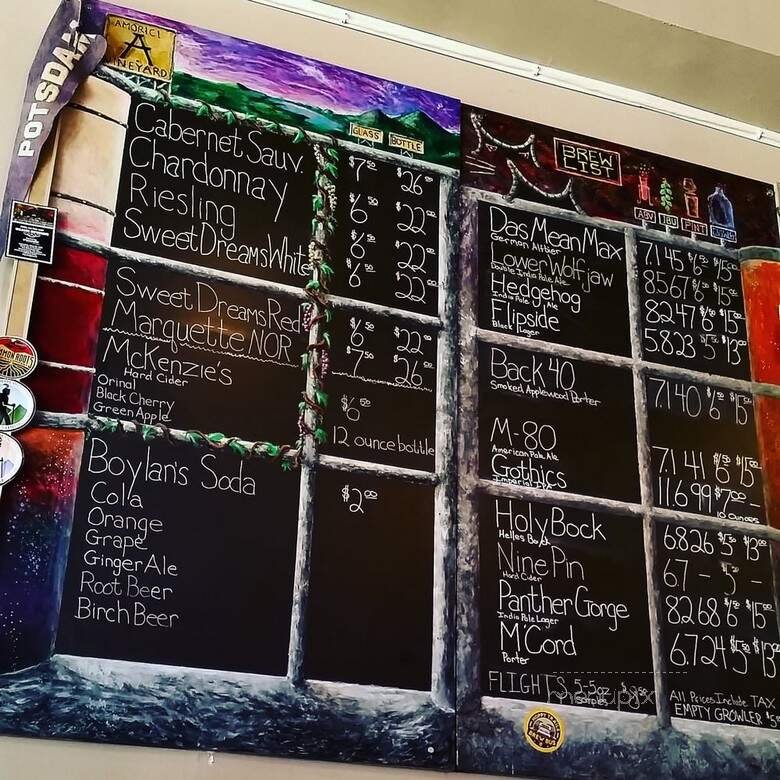 POTSDAM
AMORICI
A
VINEYARD
GLASS BOTTLE
Cabernet Sauv. $7.50 $26.00
Chardonnay $6.00 $22.00
Riesling $6.00 $22.00
Sweet Dreams White $6.00 $22.00
Sweet Dreams Red $6.00 $22.00
Marquette NOR $7.50 $26.00
McKenzie's $6.00
Hard Cider
Orinal
Black Cherry 12 ounce bottle
Green Apple
Boylan's Soda $2.00
Cola
Orange
Grape
Ginger Ale
Root Beer
Birch Beer
BREW
LIST
ABV IBU PINT
Das Mean Max 7.1 45 $6.00 $15.00
German Altbier
Lower Wolfjaw 8.5 67 $6.00 $15.00
Double India Pale Ale
Hedgehog 8.2 47 $6.00 $15.00
India Pale Ale
Flipside 5.8 23 $5.50 $13.00
Black Lager
Back 40 7.1 40 $6.00 $15.00
Smoked Applewood Porter
M-80 7.1 41 $6.00 $15.00
American Pale Ale
Gothics 11.6 99 $7.00
Imperial IPA 10 ounces
Holy Bock 6.8 26 $5.50 $13.00
Helles Bock
Nine Pin 6.7 - 5.50 -
Hard Cider
Panther Gorge 8.2 68 $6.00 $15.00
India Pale Lager
M'Cord 6.7 24 $5.50 $13.00
Porter
FLIGHTS 5-5oz
samples
All Prices Include TAX
EMPTY GROWLER $5
BREW BUS